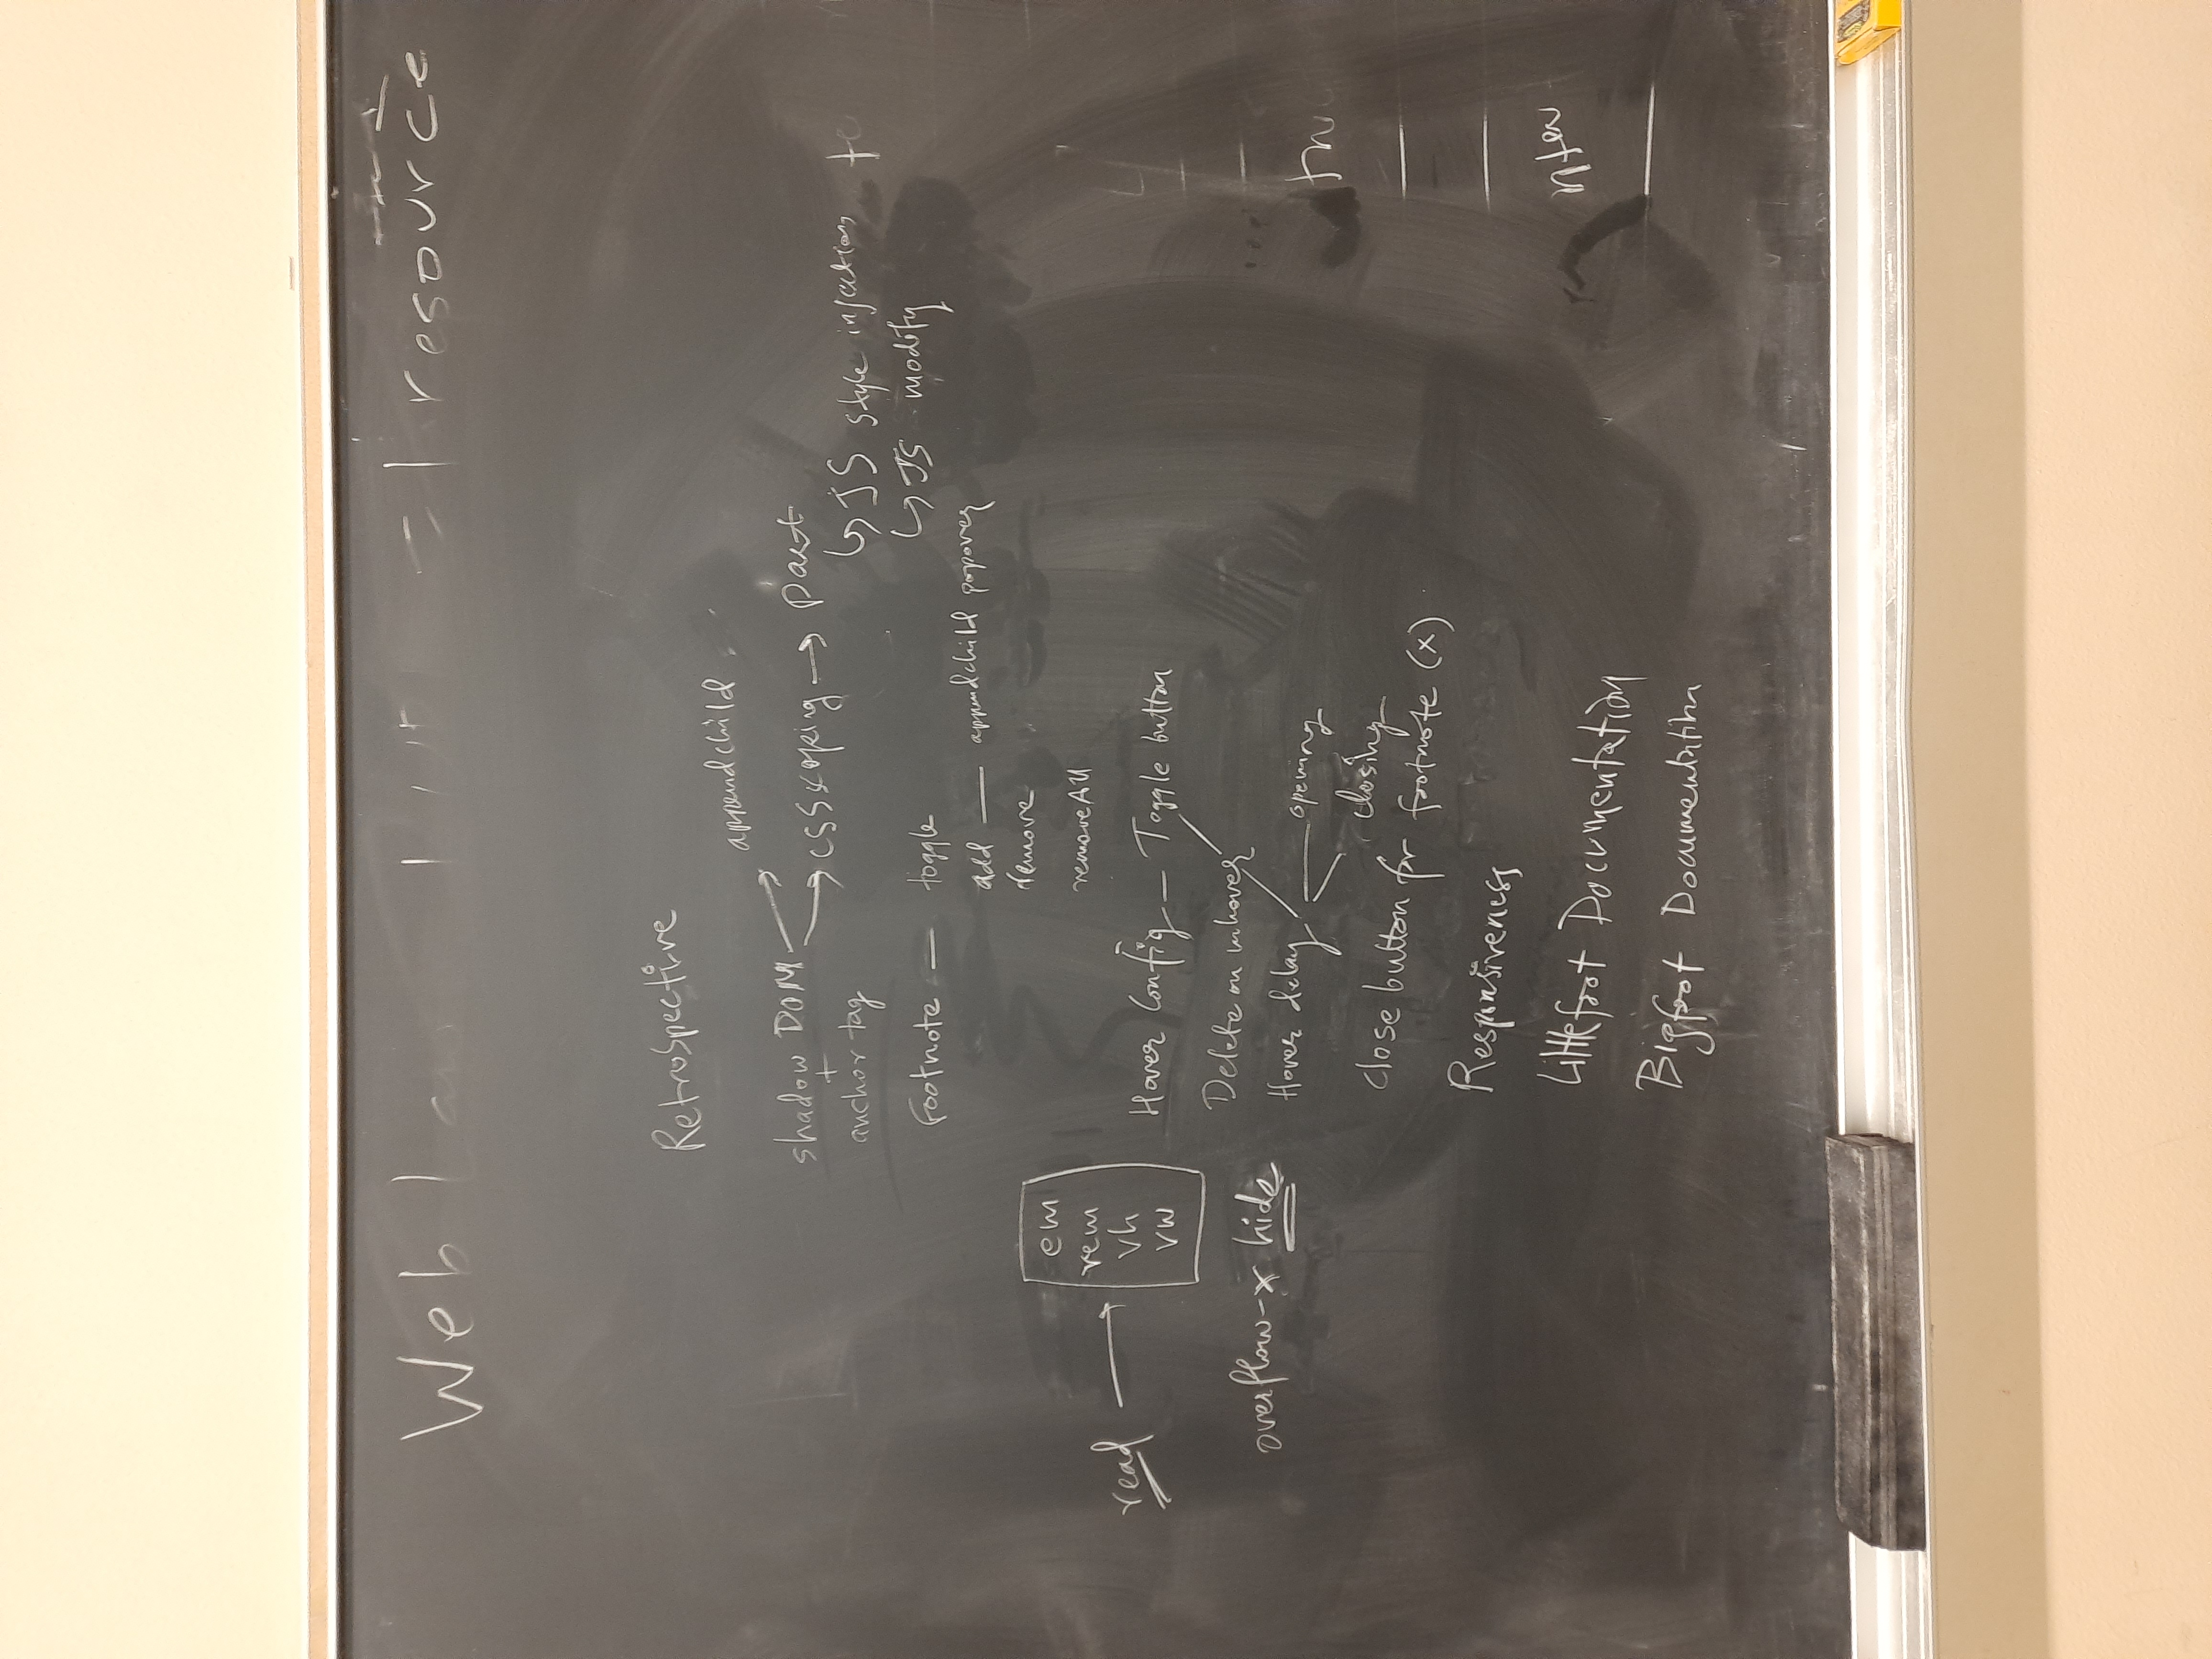 Web = 1 resource
Retrospective
appendchild
shadow DOM
+
anchor tag
CSS scoping → part
↳ JS style injection
↳ JS modify
Footnote — toggle
add — appendchild popover
remove
removeAll
read → em
rem
vh
vw
overflow-x hide
Hover Config — Toggle button
Delete on unhover
Hover delay
opening
closing
close button for footnote (x)
Responsiveness
Littlefoot Documentation
Bigfoot Documentation